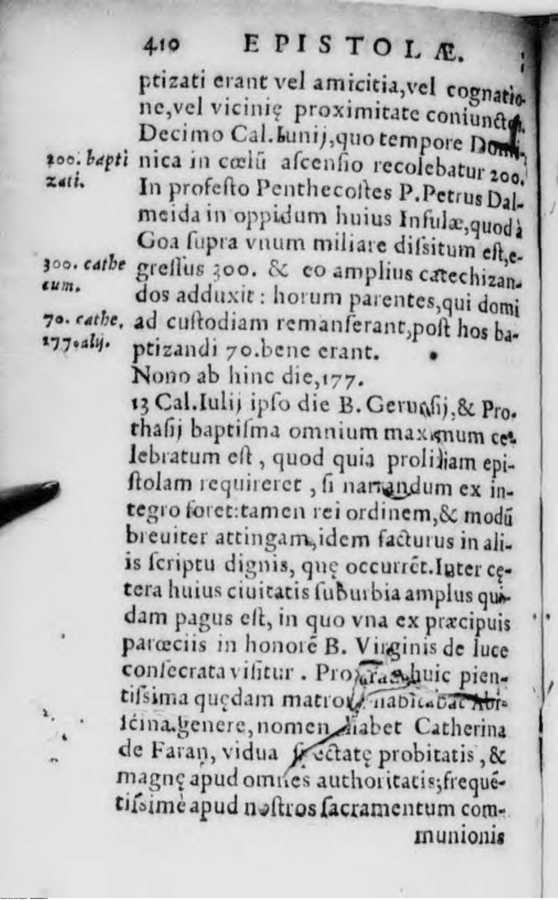 410 EPISTOLÆ.
ptizati erant vel amicitia, vel cognatio-
ne, vel vicinię proximitate coniuncti.
Decimo Cal. Iunij, quo tempore Domi-
200. bapti nica in cœlũ ascensio recolebatur 200.
zati. In profesto Penthecostes P. Petrus Dal-
meida in oppidum huius Insulæ, quod à
Goa supra vnum miliare dissitum est, e-
300. cathe gressus 300. & eo amplius catechizan-
cum. dos adduxit : horum parentes, qui domi
70. cathe. ad custodiam remanserant, post hos ba-
177. alij. ptizandi 70. bene erant.
Nono ab hinc die, 177.
13 Cal. Iulij ipso die B. Geruasij, & Pro-
thasij baptisma omnium maximum ce-
lebratum est, quod quia prolixam epi-
stolam requireret, si narrandum ex in-
tegro foret: tamen rei ordinem, & modũ
breuiter attingam, idem facturus in ali-
is scriptu dignis, quę occurrẽt. Inter cę-
tera huius ciuitatis suburbia amplus qui-
dam pagus est, in quo vna ex præcipuis
parœciis in honorẽ B. Virginis de luce
consecrata visitur. huic pien-
tissima quędam matrona habitabat Abi-
scina genere, nomen habet Catherina
de Faran, vidua spectatę probitatis, &
magnę apud omnes authoritatis; frequẽ-
tissimè apud nostros sacramentum com-
munionis